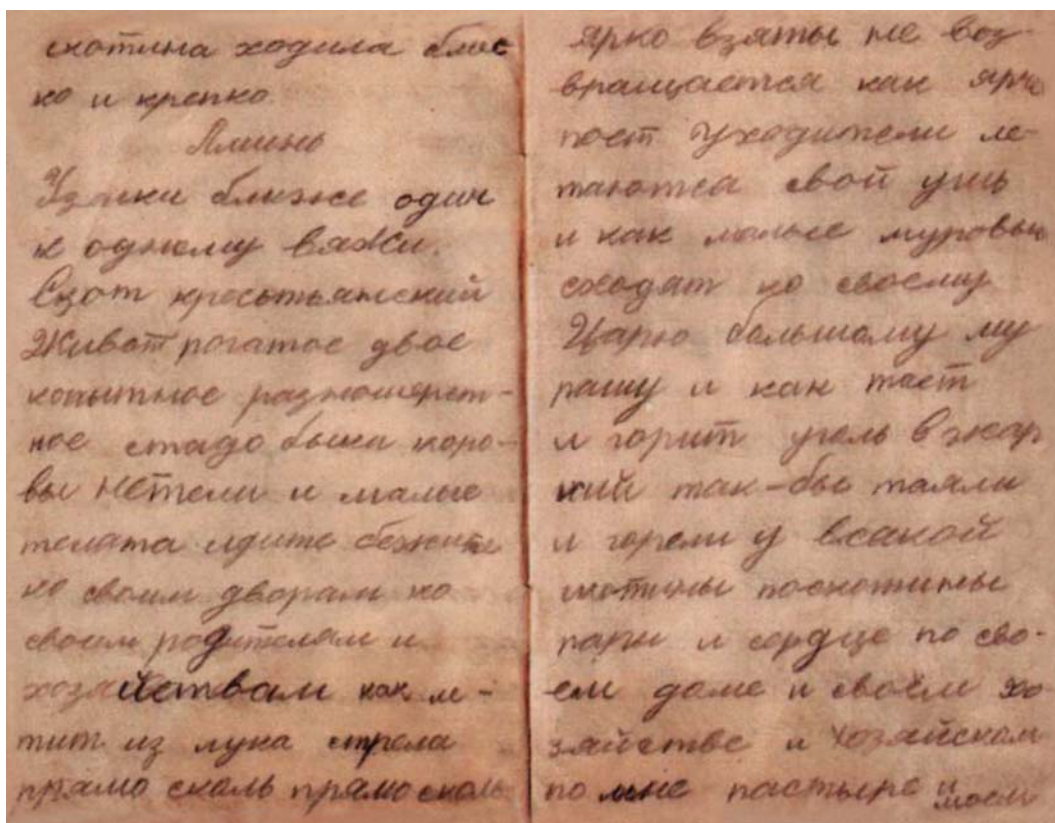 скотина ходила близ
ко и крепко.
Аминь
Узолки ближе один
к одному вяжи.
Скот кресьтьянский
Живот рогатое двое
копытное разношерст-
ное стадо быки коро-
вы нетели и малые
телята идите бежите
ко своим дворам ко
своим родителям и
хозяйствам как ле-
тит из лука стрела
прямо сколь прямо сколь
ярко взяты не воз-
вращается как
поет
свой
и как малые муровьи
сходят ко своему
Царю большому му
рашу и как тает
и горит уголь в жар
кий так-бы таяли
и горели у всякой
скотины поскотины
пары и сердце по сво-
ем доме и своём хо
зяйстве и хозяйском
по мне пастыре и моем